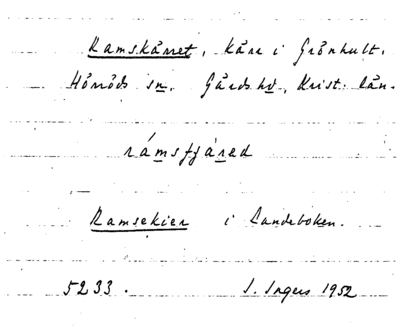 Ramskärret, kärr i Grönhult.
Hörröds sn. Gärds hd, Krist. län.
rámsfjäred
Ramsekier i Landeboken.
5233. I. Ingers 1952